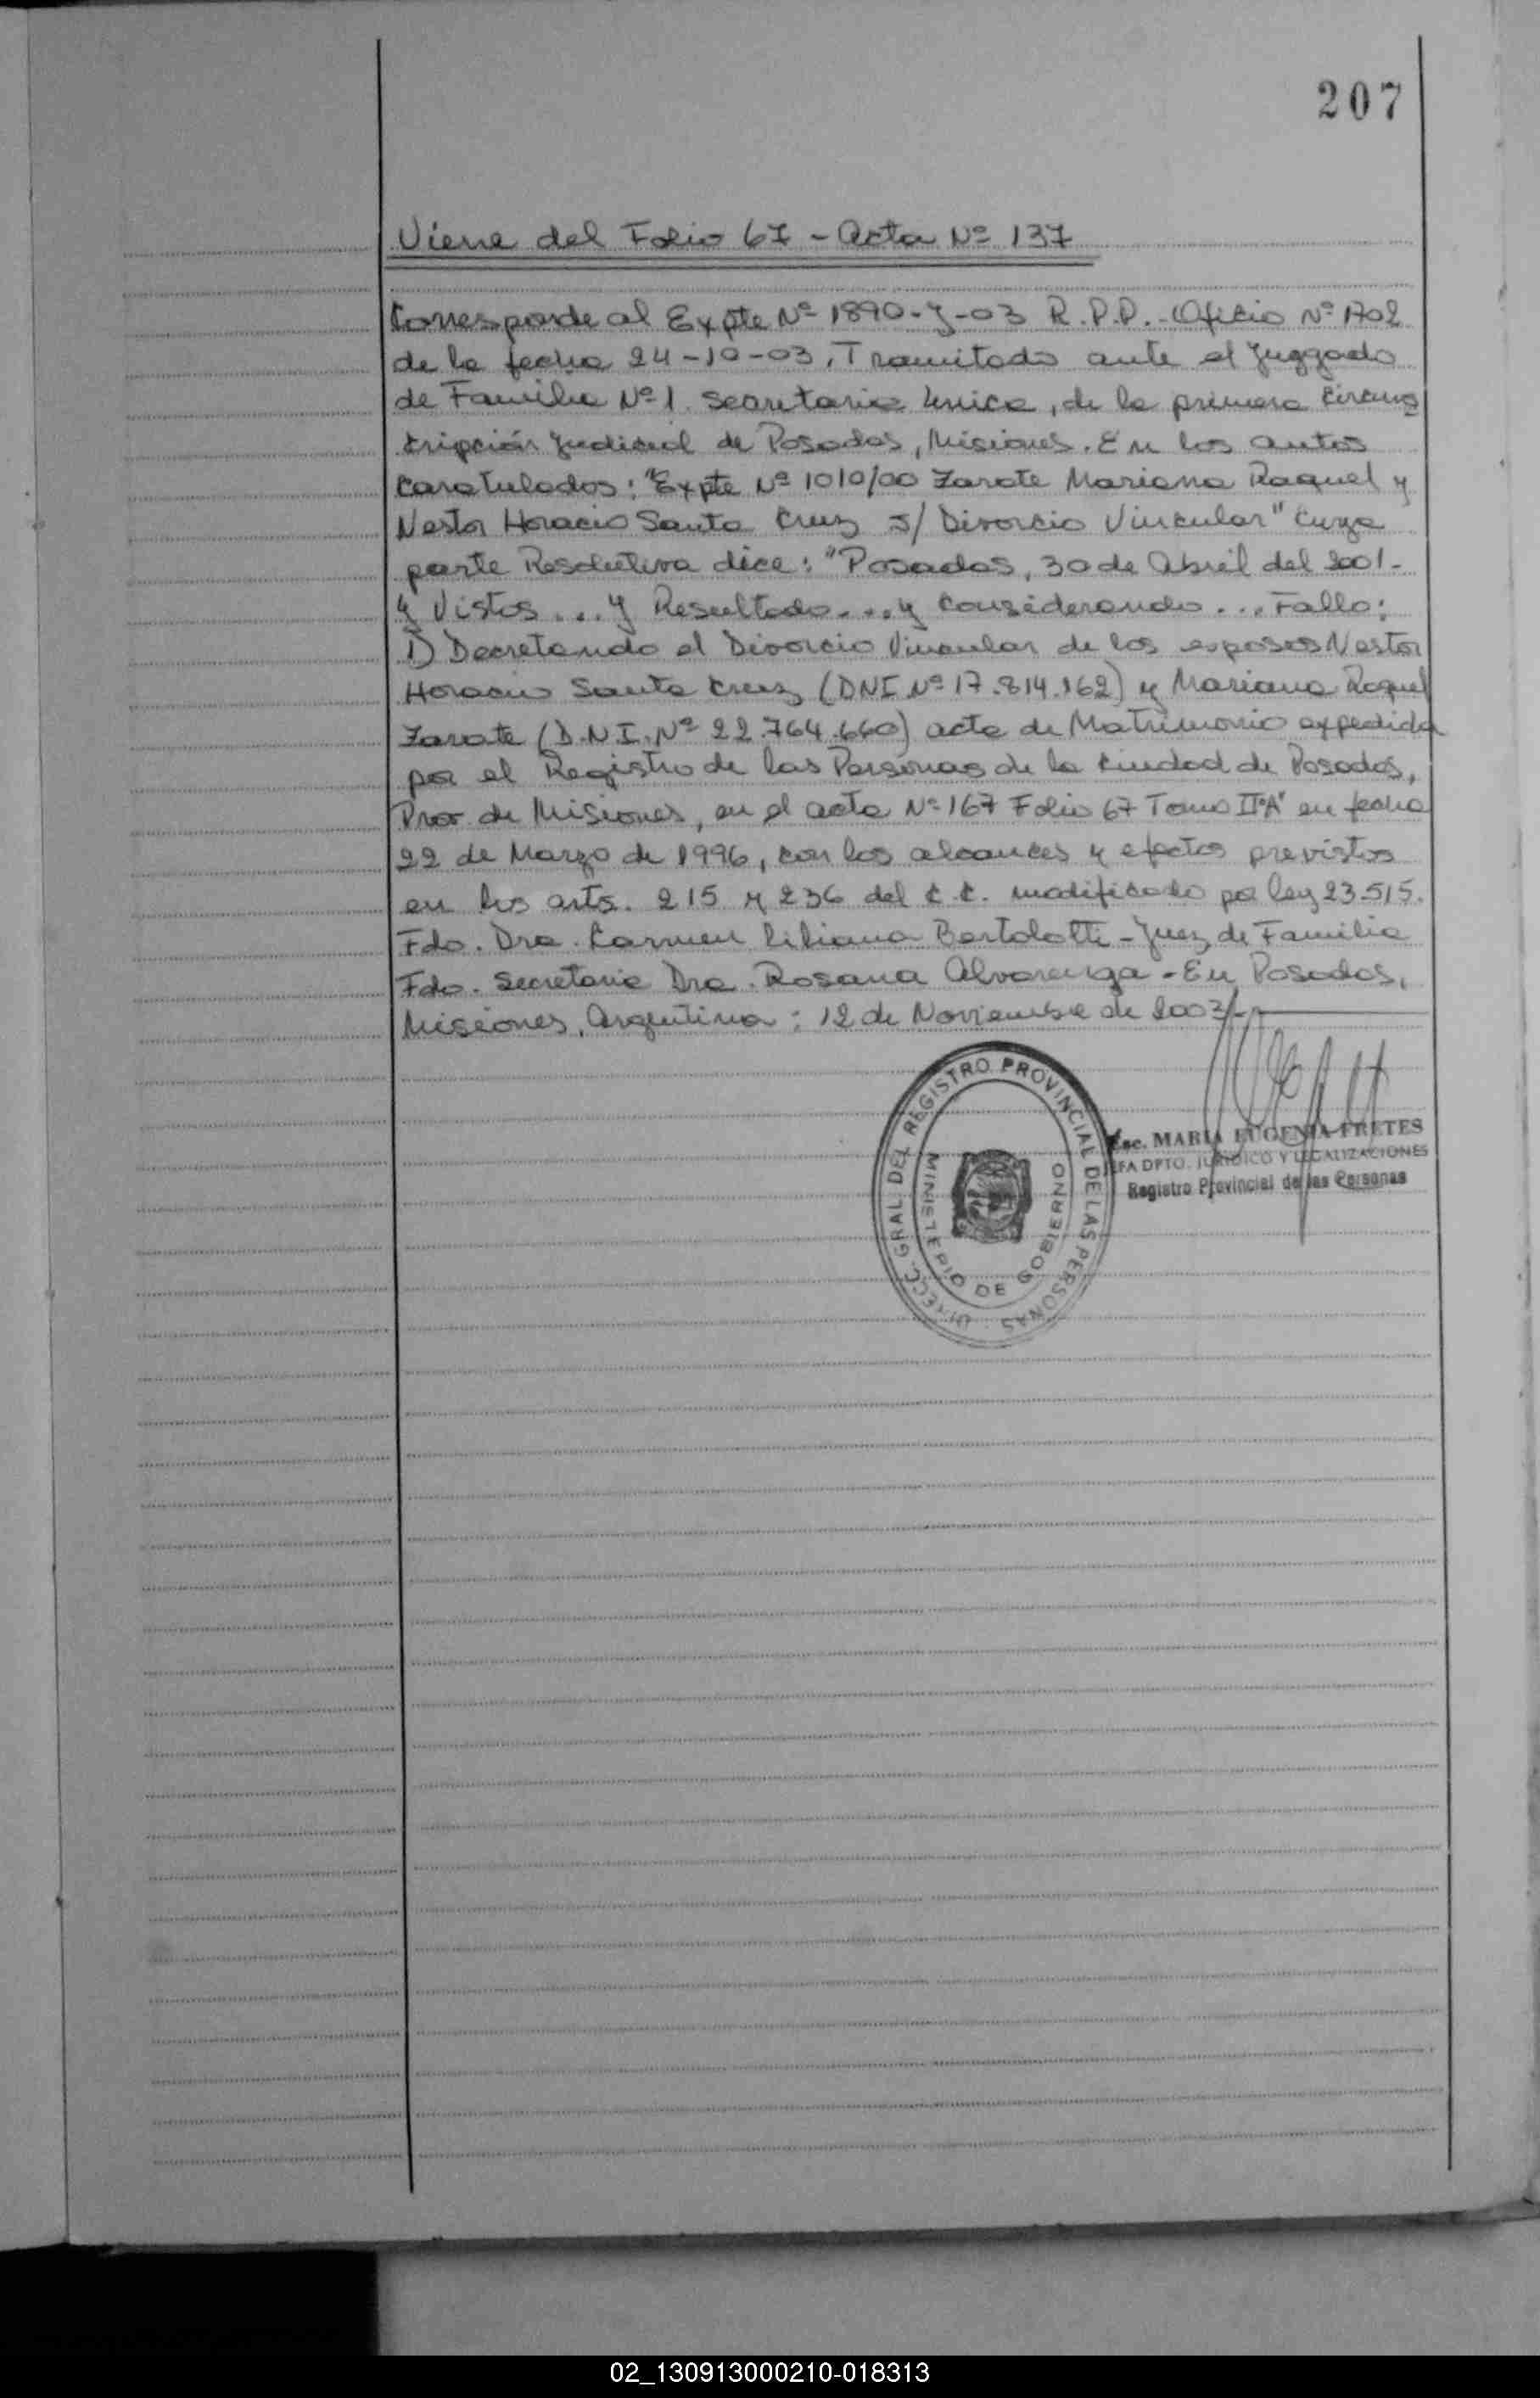 207
Viene del Folio 67 - Acta Nº 137
Corresponde al Expte Nº 1890-J-03 R.P.P. - Oficio Nº 1702
de la fecha 24-10-03, Tramitado ante el Juzgado
de Familia Nº 1 Secretaria Unica, de la primera circuns
cripción Judicial de Posadas, Misiones. En los autos
caratulados: "Expte Nº 1010/00 Zarate Mariana Raquel y
Nestor Horacio Santa Cruz S/ Divorcio Vincular" cuya
parte Resolutiva dice: "Posadas, 30 de Abril del 2001.-
y Vistos... y Resultado... y Considerando... Fallo:
1) Decretando el Divorcio Vincular de los esposos Nestor
Horacio Santa Cruz (DNI Nº 17.814.162) y Mariana Raquel
Zarate (D.N.I. Nº 22.764.660) acta de Matrimonio expedida
por el Registro de las Personas de la Ciudad de Posadas,
Prov. de Misiones, en el acta Nº 167 Folio 67 Tomo II "A" en fecha
22 de Marzo de 1996, con los alcances y efectos previstos
en los arts. 215 y 236 del C.C. modificado por ley 23.515.
Fdo. Dra. Carmen Liliana Bertolotti - Juez de Familia
Fdo. Secretaria Dra. Rosana Alvarenga - En Posadas,
Misiones, Argentina: 12 de Noviembre de 2003/.-
DIRECC. GRAL. DEL REGISTRO PROVINCIAL DE LAS PERSONAS
MINISTERIO DE GOBIERNO
Esc. MARIA EUGENIA FRETES
JEFA DPTO. JURIDICO Y LEGALIZACIONES
Registro Provincial de las Personas
02_130913000210-018313